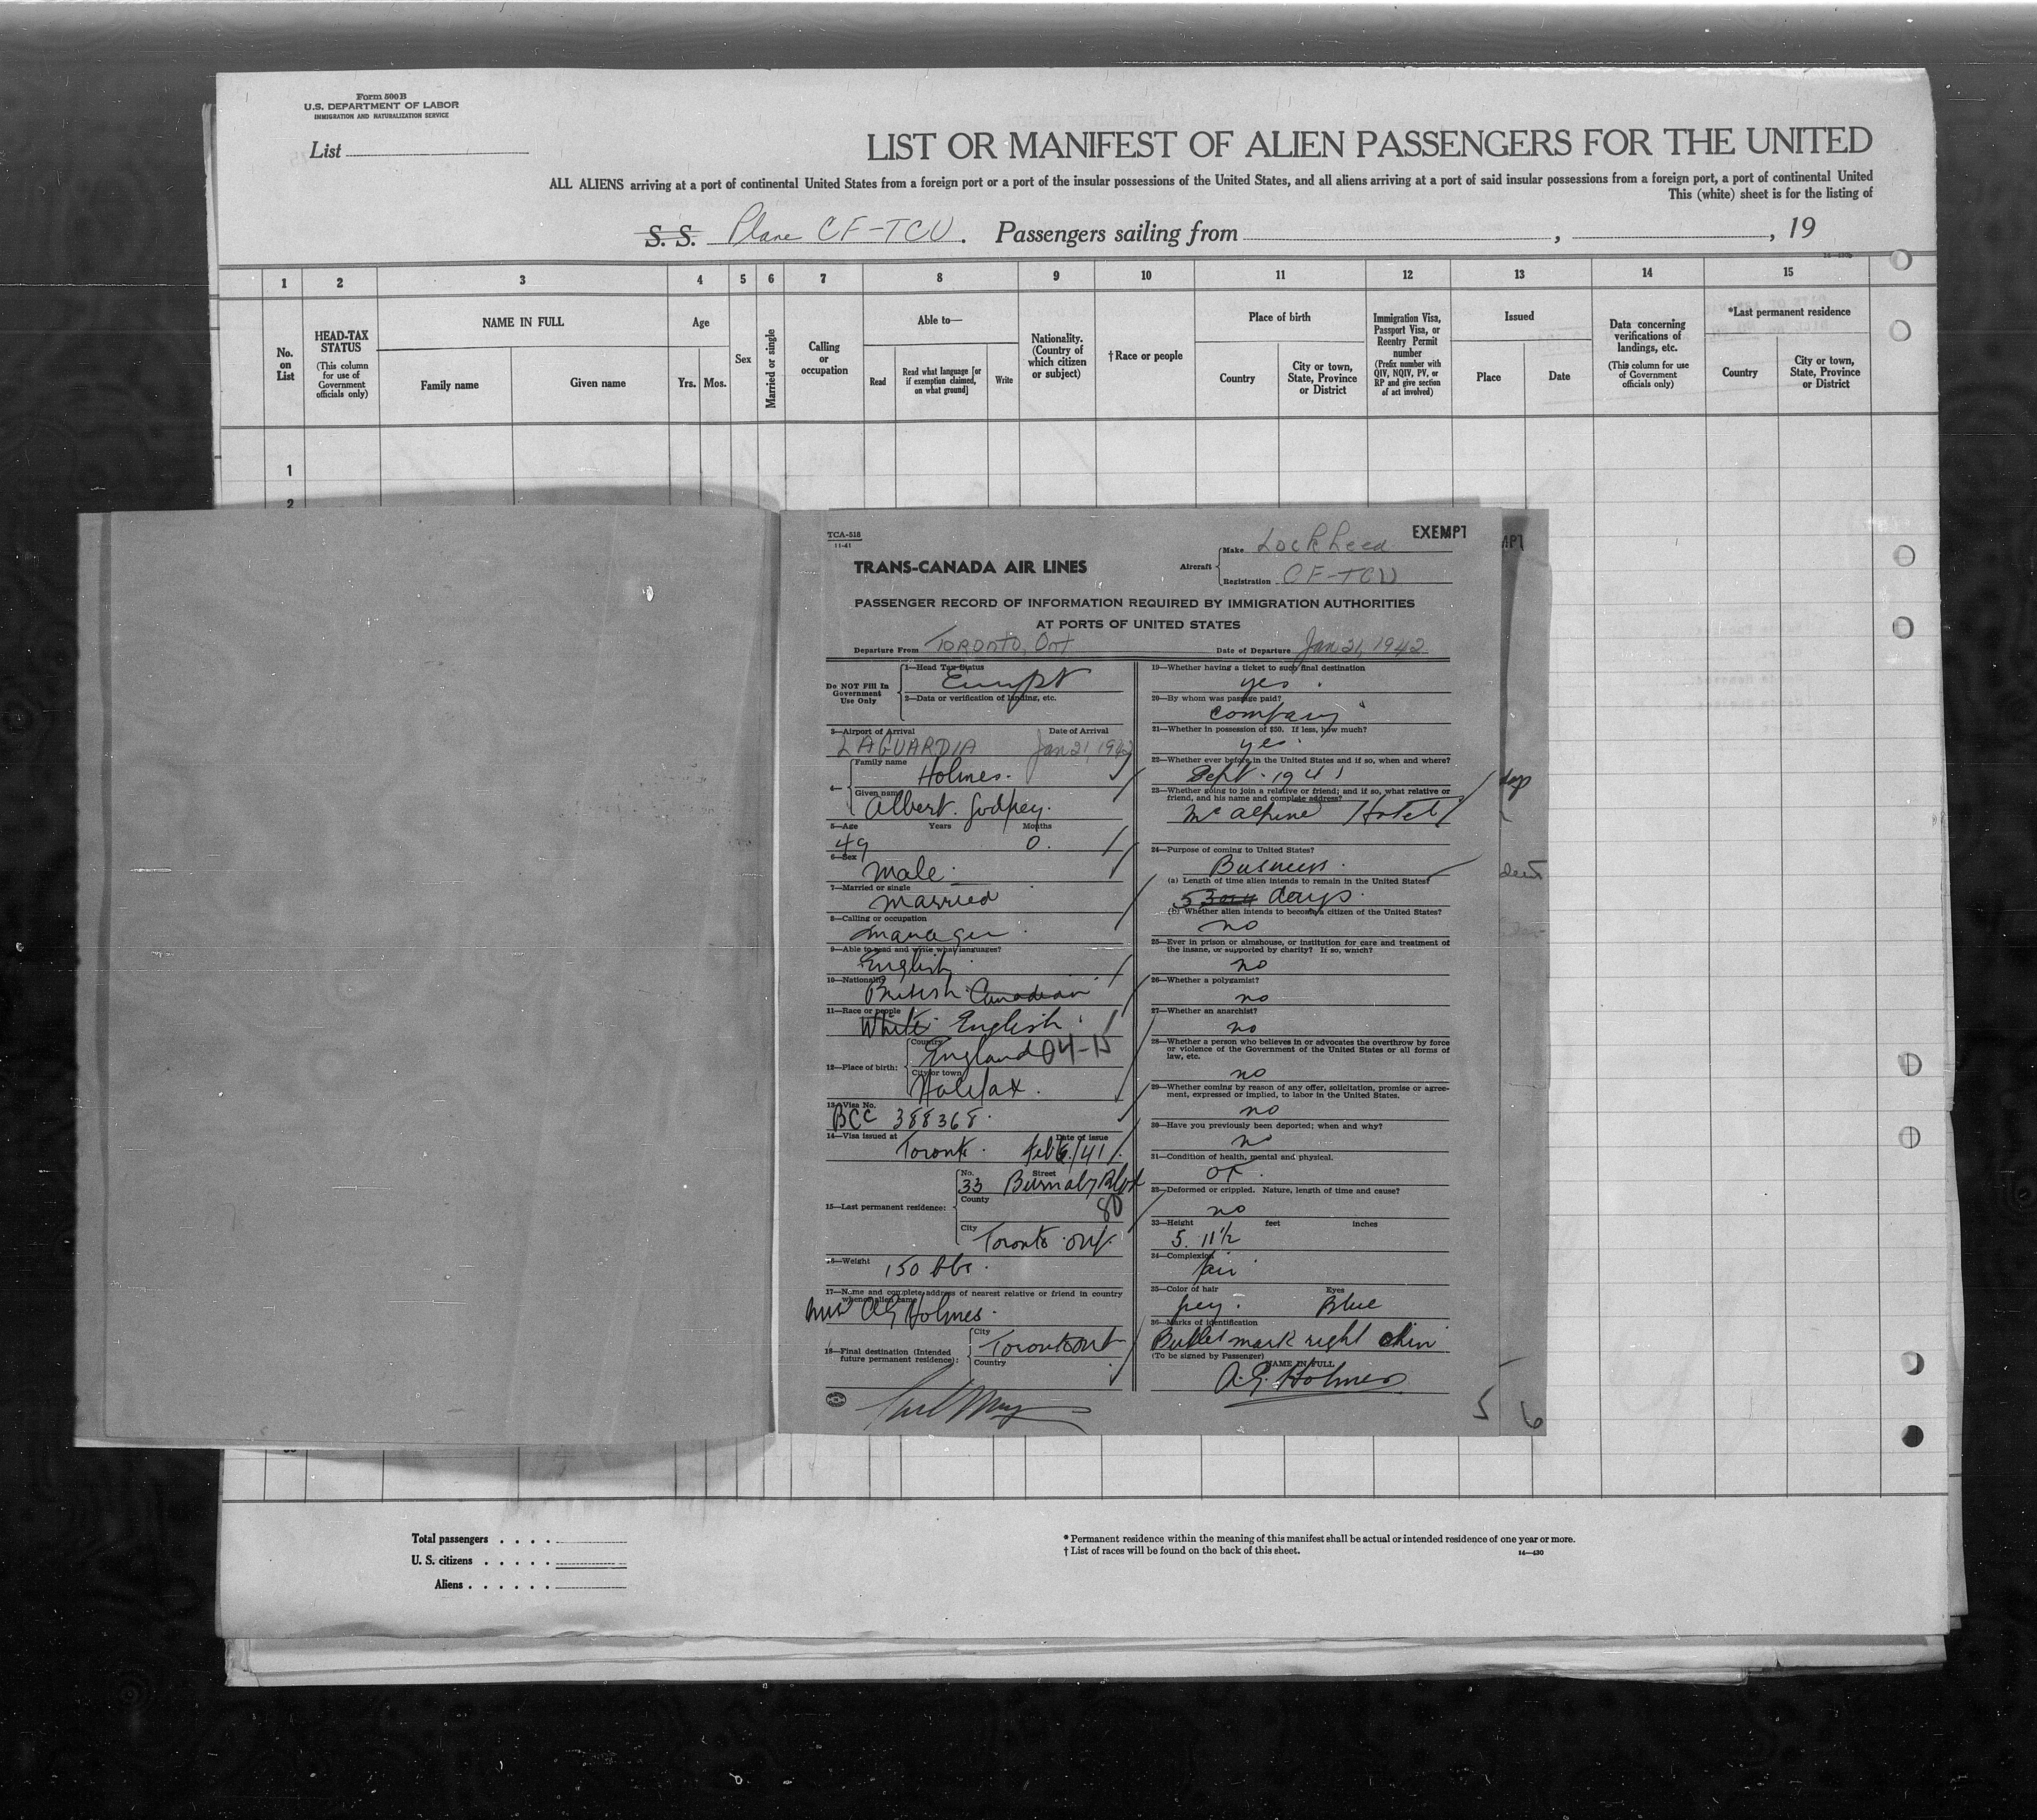 Form 500B
U.S. DEPARTMENT OF LABOR
IMMIGRATION AND NATURALIZATION SERVICE
List
LIST OR MANIFEST OF ALIEN PASSENGERS FOR THE UNITED
ALL ALIENS arriving at a port of continental United States from a foreign port or a port of the insular possessions of the United States, and all aliens arriving at a port of said insular possessions from a foreign port, a port of continental United
This (white) sheet is for the listing of
S. S. Plane CF-TCU. Passengers sailing from , , 19
14—430b
1 2 3 4 5 6 7 8 9 10 11 12 13 14 15
No. on List
HEAD-TAX STATUS (This column for use of Government officials only)
NAME IN FULL
Family name Given name
Age
Yrs. Mos.
Sex
Married or single
Calling or occupation
Able to—
Read
Read what language [or if exemption claimed, on what ground]
Write
Nationality. (Country of which citizen or subject)
†Race or people
Place of birth
Country
City or town, State, Province or District
Immigration Visa, Passport Visa, or Reentry Permit number (Prefix number with QIV, NQIV, PV, or RP and give section of act involved)
Issued
Place Date
Data concerning verifications of landings, etc. (This column for use of Government officials only)
*Last permanent residence
Country
City or town, State, Province or District
1
2
TCA-518
11-41
EXEMPT
TRANS-CANADA AIR LINES
Aircraft
Make Lockheed
Registration CF-TCU
PASSENGER RECORD OF INFORMATION REQUIRED BY IMMIGRATION AUTHORITIES
AT PORTS OF UNITED STATES
Departure From TORONTO, Ont Date of Departure Jan 21, 1942
Do NOT Fill In Government Use Only
1—Head Tax Status
Exempt
2—Data or verification of landing, etc.
3—Airport of Arrival Date of Arrival
LAGUARDIA Jan 21, 1942
4—
Family name
Holmes.
Given name
Albert. Godfrey.
5—Age Years Months
49 0.
6—Sex
Male.
7—Married or single
Married
8—Calling or occupation
Manager
9—Able to read and write what languages?
English
10—Nationality
British Canadian
11—Race or people
White English
12—Place of birth:
Country
England 04-15
City or town
Halifax.
13—Visa No.
BCC 388368.
14—Visa issued at Date of issue
Toronto. Feb 6/41
15—Last permanent residence:
No. Street
33 Burnaby Blvd
County
80
City
Toronto Ont.
16—Weight
150 lbs.
17—Name and complete address of nearest relative or friend in country whence alien came
Mrs AG Holmes.
18—Final destination (Intended future permanent residence):
City
Toronto Ont
Country
19—Whether having a ticket to such final destination
yes.
20—By whom was passage paid?
Company
21—Whether in possession of $50. If less, how much?
yes.
22—Whether ever before in the United States and if so, when and where?
Sept. 1941
23—Whether going to join a relative or friend; and if so, what relative or friend, and his name and complete address?
McAlpine Hotel
24—Purpose of coming to United States?
Business.
(a) Length of time alien intends to remain in the United States?
5 days.
(b) Whether alien intends to become a citizen of the United States?
no
25—Ever in prison or almshouse, or institution for care and treatment of the insane, or supported by charity? If so, which?
no
26—Whether a polygamist?
no
27—Whether an anarchist?
no
28—Whether a person who believes in or advocates the overthrow by force or violence of the Government of the United States or all forms of law, etc.
no
29—Whether coming by reason of any offer, solicitation, promise or agreement, expressed or implied, to labor in the United States.
no
30—Have you previously been deported; when and why?
no
31—Condition of health, mental and physical.
OK.
32—Deformed or crippled. Nature, length of time and cause?
no
33—Height feet inches
5. 11½
34—Complexion
fair
35—Color of hair Eyes
grey. Blue
36—Marks of identification
Bullet mark right chin
(To be signed by Passenger)
NAME IN FULL
A. G. Holmes
5 6
Total passengers . . . .
U. S. citizens . . . . .
Aliens . . . . . .
* Permanent residence within the meaning of this manifest shall be actual or intended residence of one year or more.
† List of races will be found on the back of this sheet.
14—430